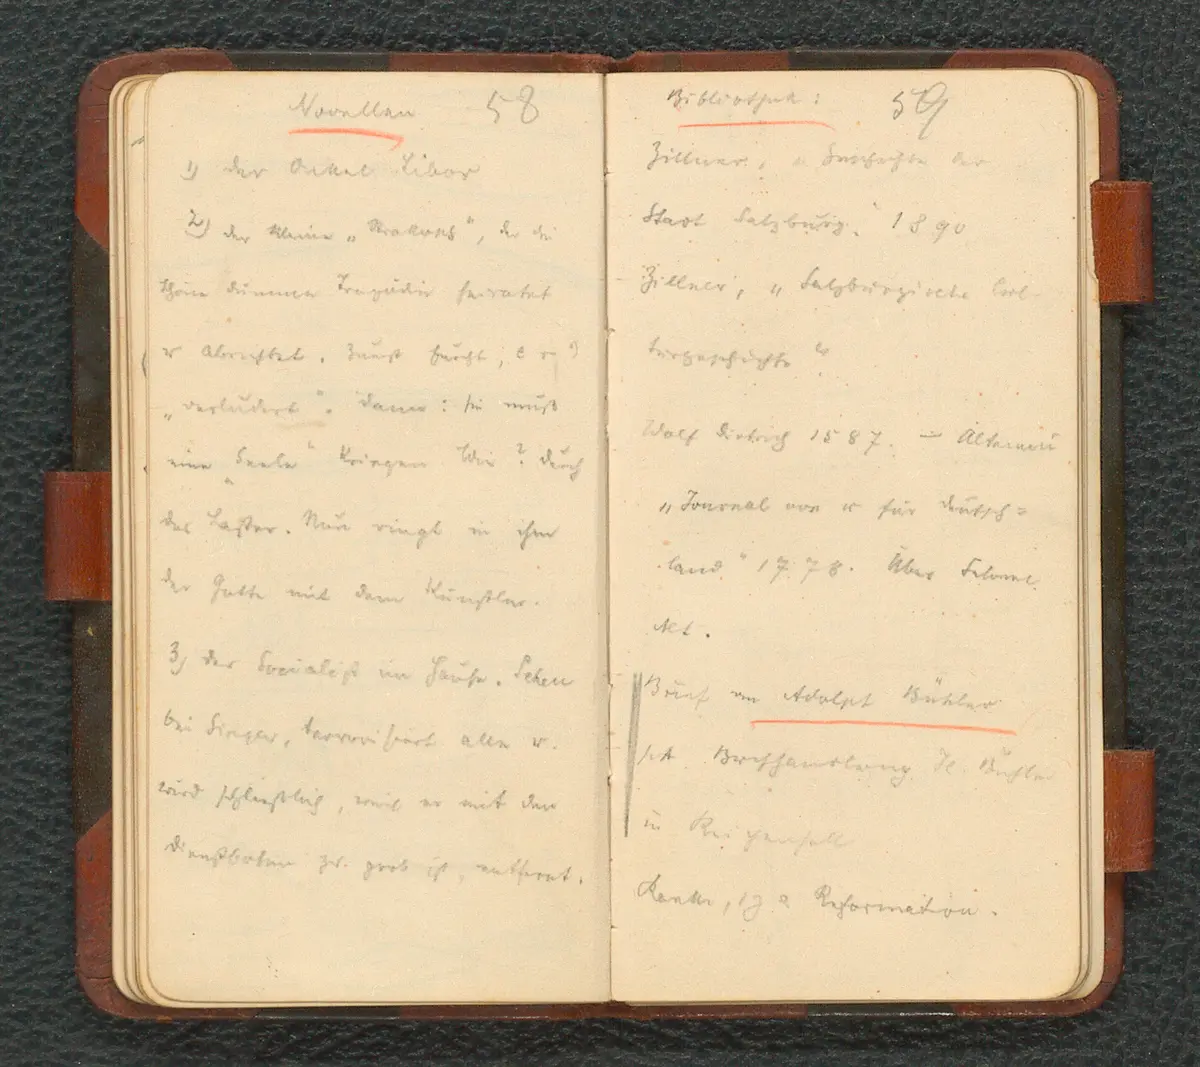 Novellen 58
1) der Onkel Libor
2) der kleine „Krakovsk", der die
schöne dumme Tragödin heiratet
u abrichtet. Zuerst
„verludert". Dann: sie muß
eine „Seele" kriegen Wie? durch
das Laster. Nun ringt in ihm
der Gatte mit dem Künstler.
3) der Socialist im Hause.
bei Singer, terrorisiert alle u.
wird schließlich, weil er mit den
Dienstboten zu grob ist, entfernt.
Bibliothek: 59
Zillner, „Geschichte der
Stadt Salzburg." 1890
Zillner, „Salzburgische Cul-
turgeschichte"
Wolf Dietrich 1587. – Altenau
„Journal von u für Deutsch=
land" 1778. Über Salome
Alt.
Brief an Adolph Bühler
Buchhandlung H. Bühler
in Reichenhall
Ranke, Reformation.